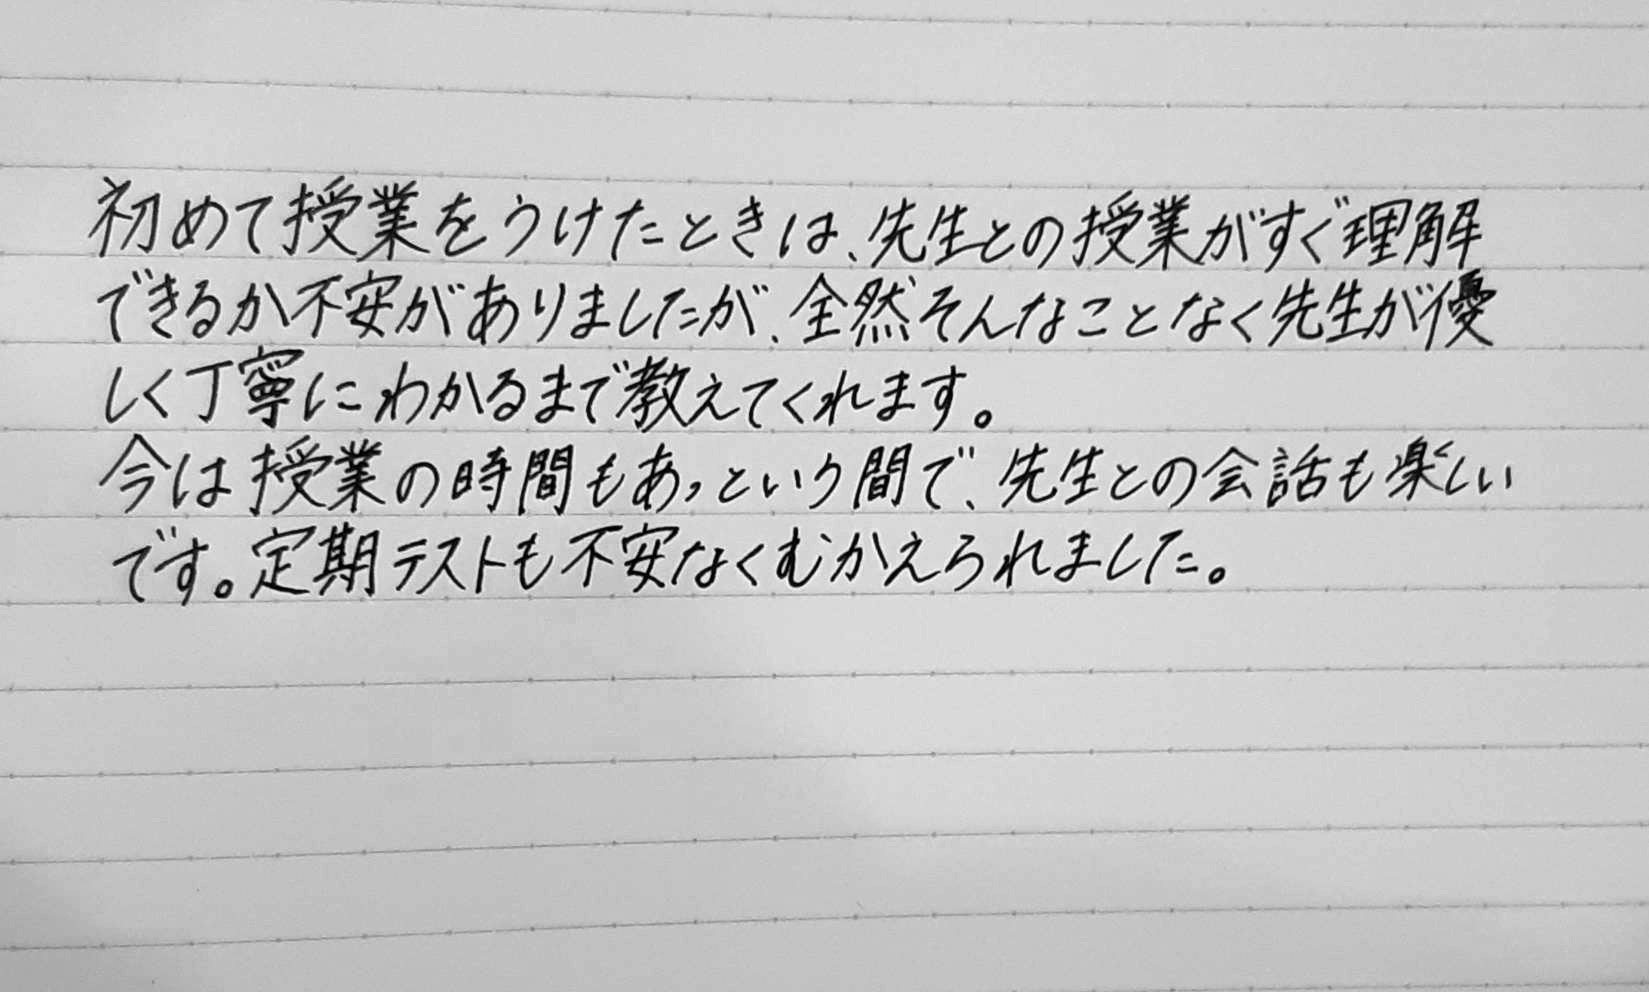 初めて授業をうけたときは、先生との授業がすぐ理解
できるか不安がありましたが、全然そんなことなく先生が優
しく丁寧にわかるまで教えてくれます。
今は授業の時間もあっという間で、先生との会話も楽しい
です。定期テストも不安なくむかえられました。